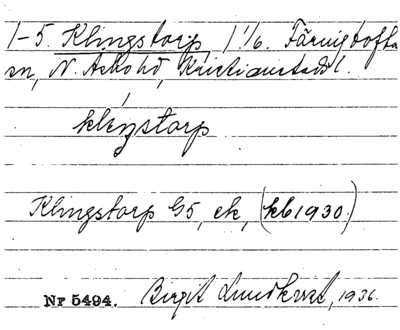 1-5. Klingstorp, 1 1/6. Färingtofta
sn, N. Åsbo hd, Kristianstads l.
kléŋstorp
Klingstorp G5, ek, (kb 1930)
Nr 5494. Birgit Lundkvist, 1936.